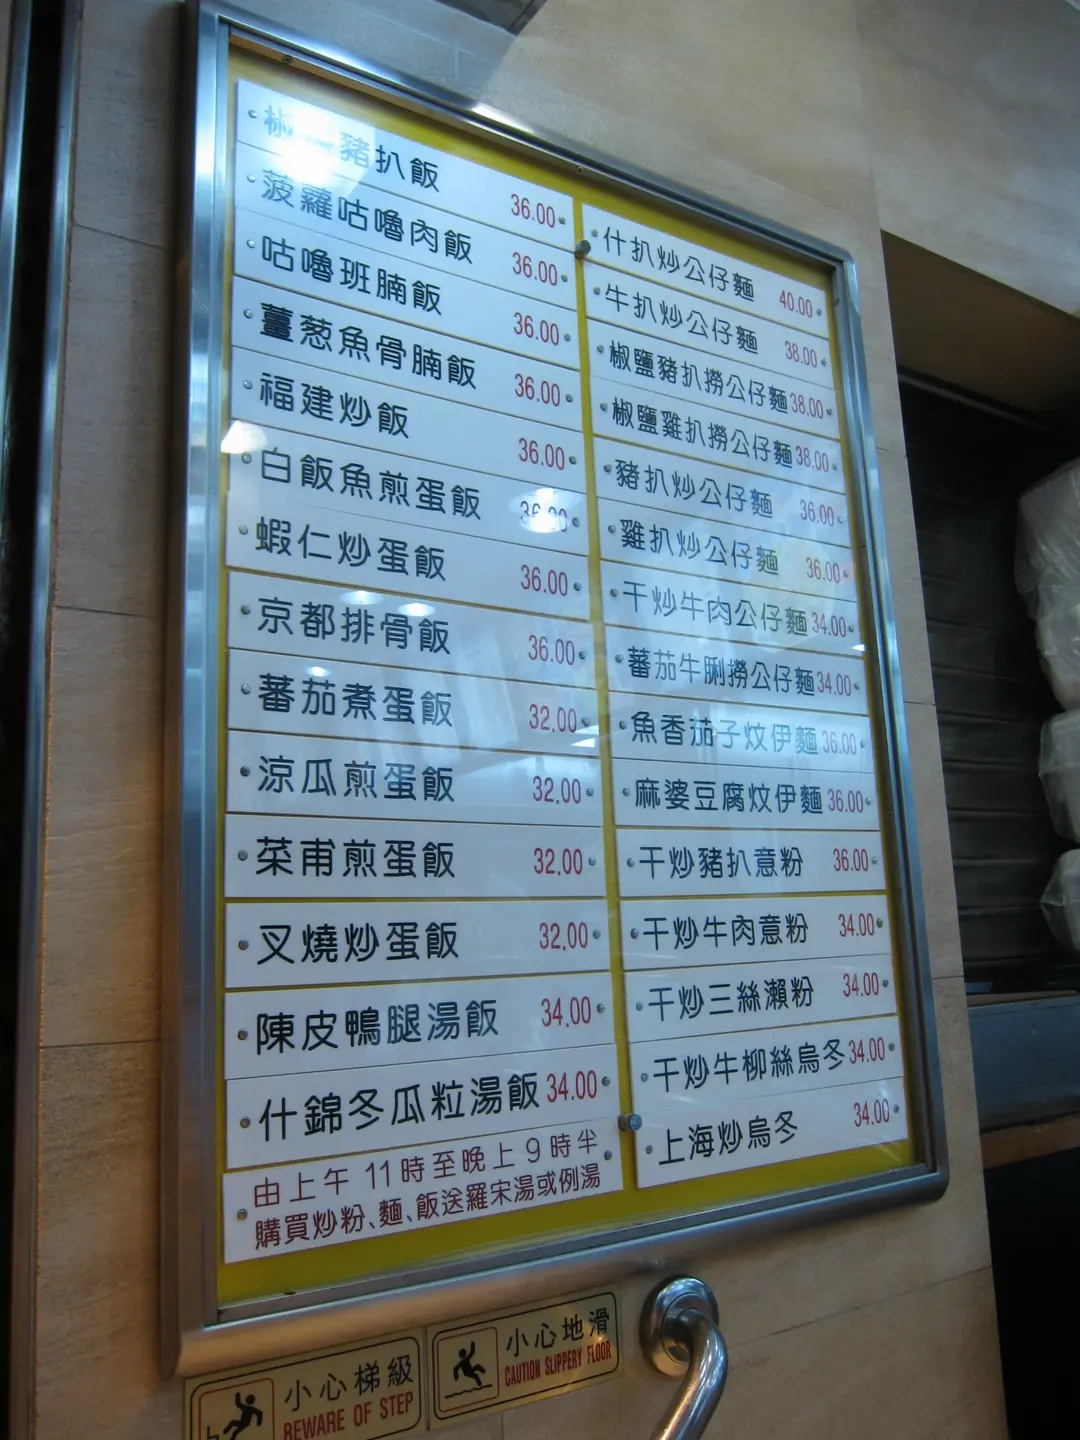 椒 豬扒飯 36.00
菠蘿咕嚕肉飯 36.00
咕嚕班腩飯 36.00
薑葱魚骨腩飯 36.00
福建炒飯 36.00
白飯魚煎蛋飯 36.00
蝦仁炒蛋飯 36.00
京都排骨飯 36.00
蕃茄煮蛋飯 32.00
涼瓜煎蛋飯 32.00
菜甫煎蛋飯 32.00
叉燒炒蛋飯 32.00
陳皮鴨腿湯飯 34.00
什錦冬瓜粒湯飯 34.00
由上午11時至晚上9時半
購買炒粉、麵、飯送羅宋湯或例湯
什扒炒公仔麵 40.00
牛扒炒公仔麵 38.00
椒鹽豬扒撈公仔麵 38.00
椒鹽雞扒撈公仔麵 38.00
豬扒炒公仔麵 36.00
雞扒炒公仔麵 36.00
干炒牛肉公仔麵 34.00
蕃茄牛脷撈公仔麵 34.00
魚香茄子炆伊麵 36.00
麻婆豆腐炆伊麵 36.00
干炒豬扒意粉 36.00
干炒牛肉意粉 34.00
干炒三絲瀨粉 34.00
干炒牛柳絲烏冬 34.00
上海炒烏冬 34.00
小心梯級
BEWARE OF STEP
小心地滑
CAUTION SLIPPERY FLOOR